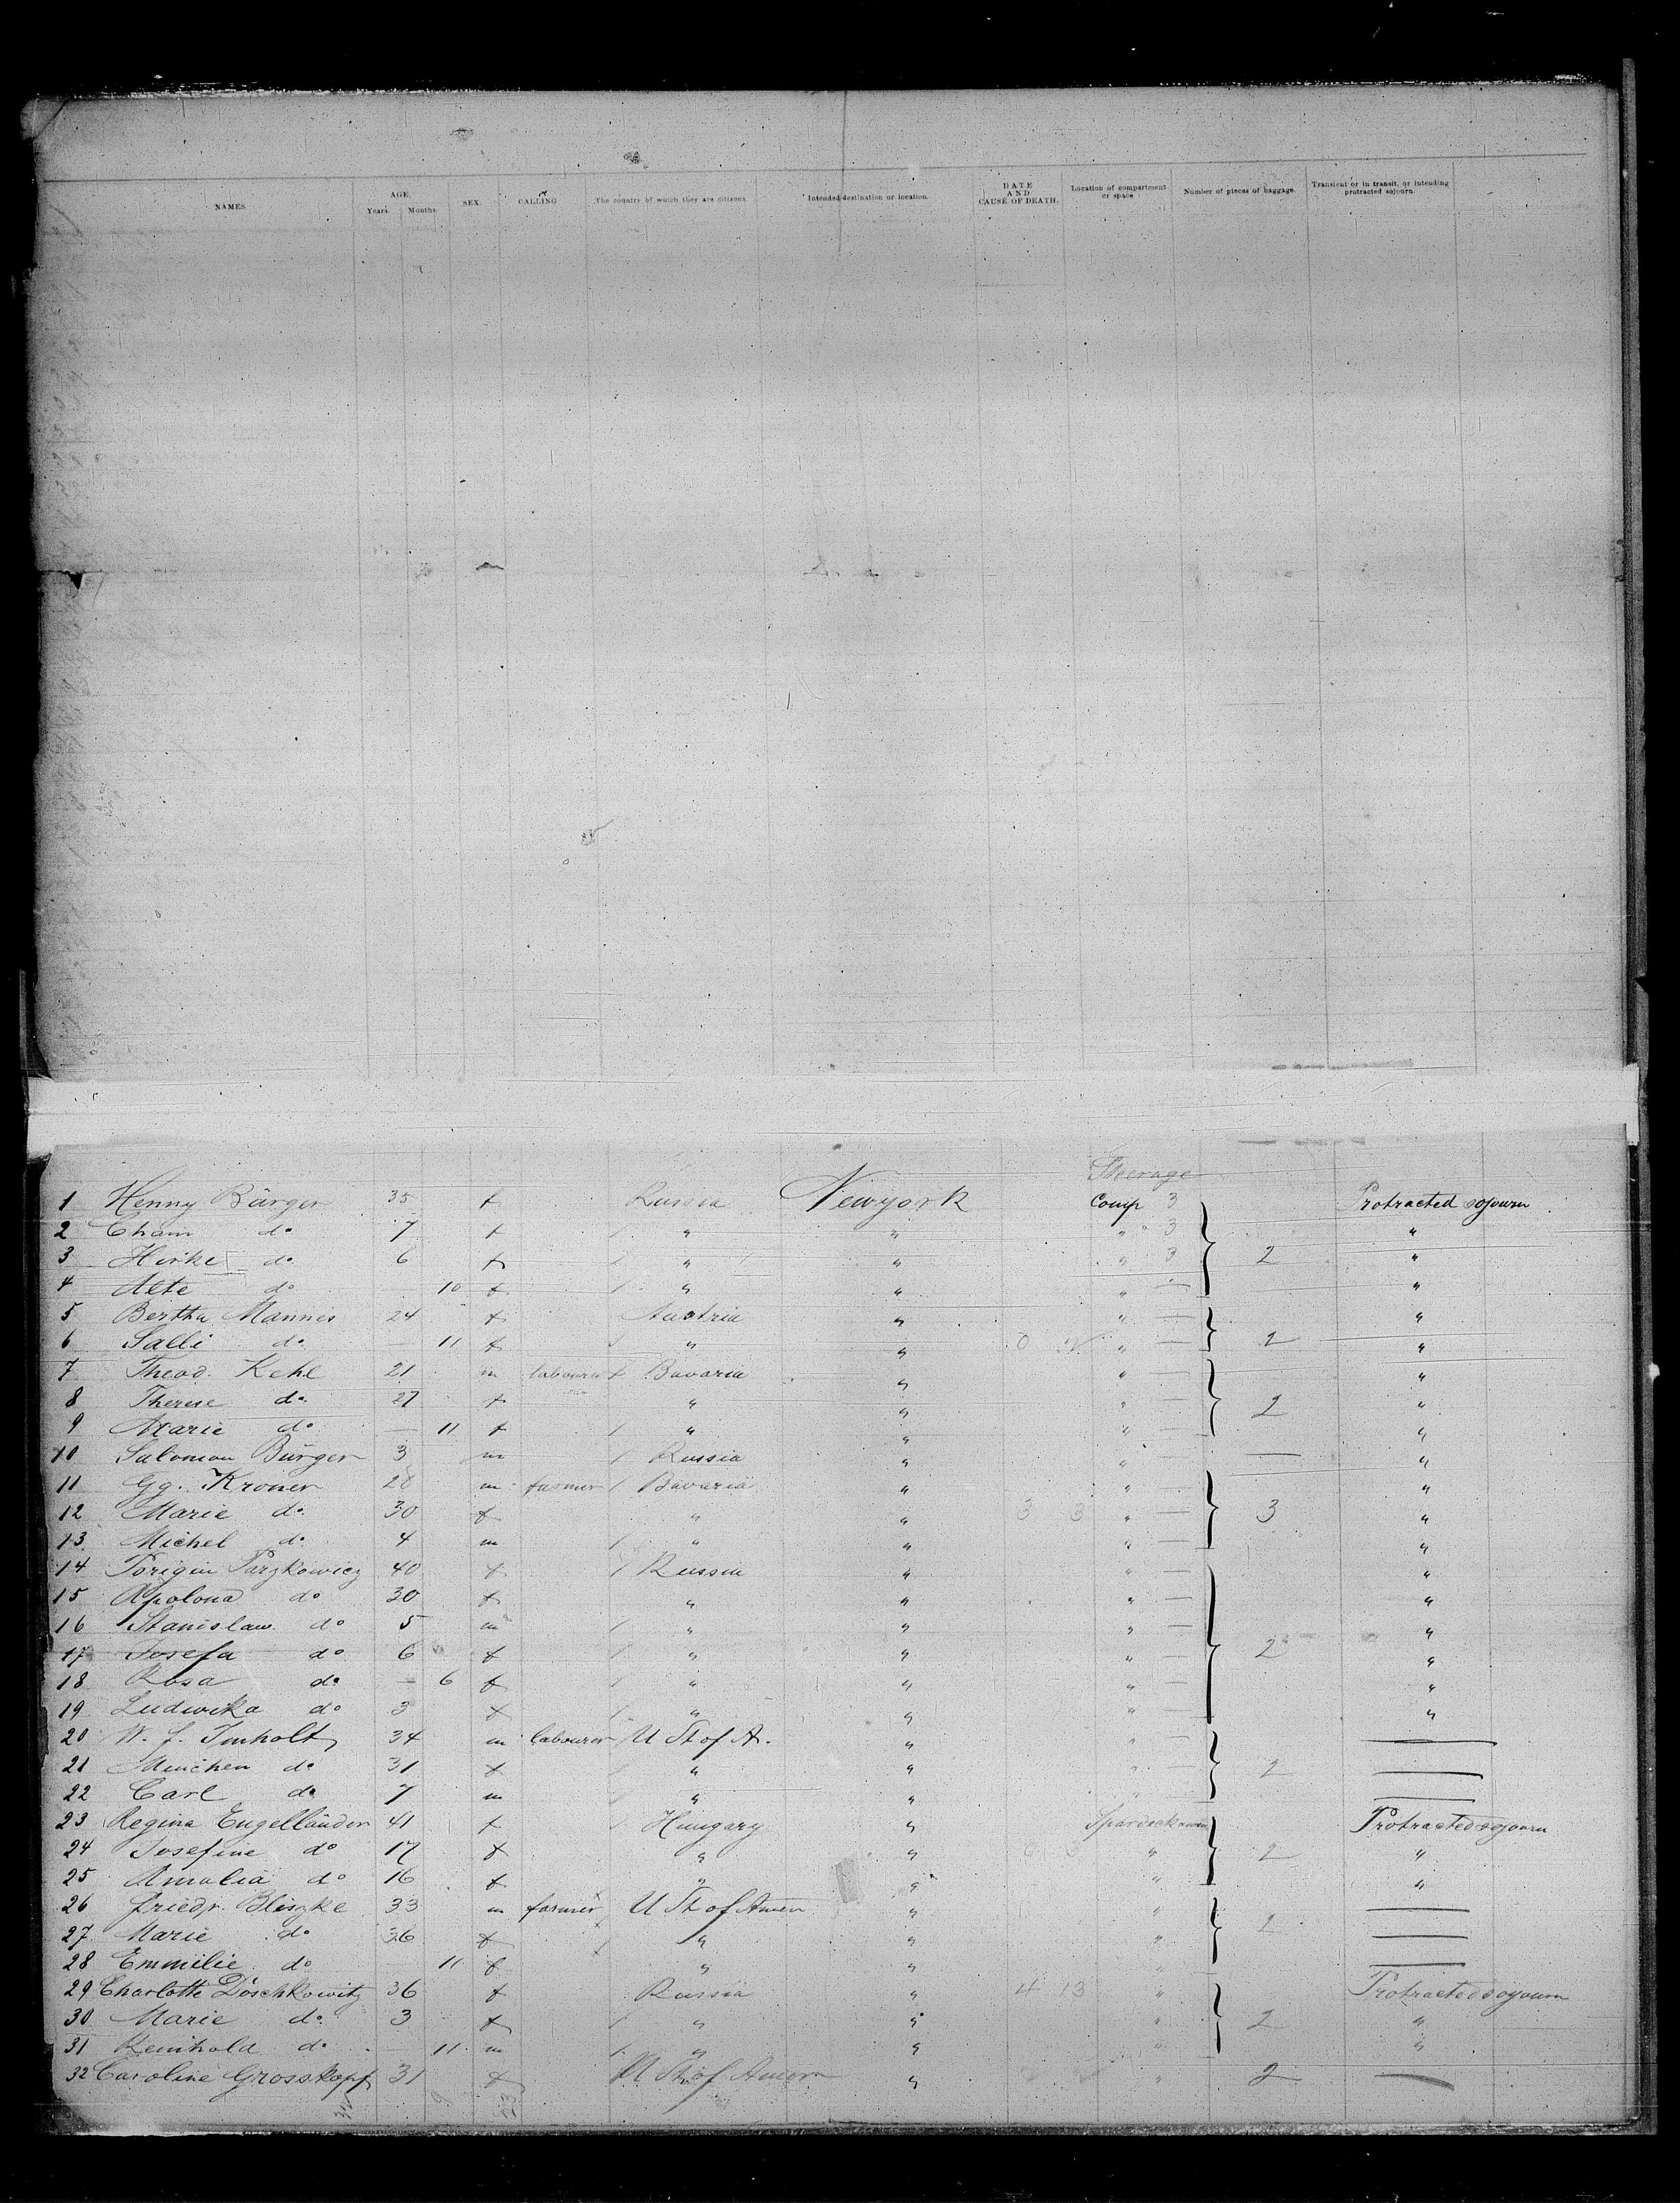 NAMES AGE. Years. Months. SEX. CALLING The country of which they are citizens. Intended destination or location. DATE AND CAUSE OF DEATH. Location of compartment or space Number of pieces of baggage. Transient or in transit, or intending protracted sojourn.
Steerage
1 Henny Bürger 35 f Russia Newyork Comp 3 Protracted sojourn
2 Chaim do 7 f " " " 3 "
3 Hirke do 6 f " " " 3 2 "
4 Alte do 10 f " " " — "
5 Bertha Mannes 24 f Austria " " — "
6 Salli do — 11 f " " " — 2 "
7 Theod. Kehl 21 m labourer Bavaria " " — "
8 Therese do 27 f " " " — 2 "
9 Marie do — 11 f " " " — "
10 Salomon Bürger 3 m Russia " " — "
11 Gg. Kroner 28 m farmer Bavaria " " — "
12 Marie do 30 f " " 3 3 " — 3 "
13 Michel do 4 m " " " — "
14 40 f Russia " " — "
15 Apolona do 30 f " " " — "
16 Stanislaw do 5 m " " " — "
17 Josefa do 6 f " " " — 2 "
18 Rosa do — 6 f " " " — "
19 Ludwika do 3 f " " " — "
20 W. f. Imholt 34 m labourer U St of A. " " — —
21 Minchen do 31 f " " " — 2 —
22 Carl do 7 m " " " — —
23 Regina Engelländer 41 f Hungary " Protracted sojourn
24 Josefine do 17 f " " " 2 "
25 Amalia do 16 f " " " "
26 friedr. Bliszke 33 m farmer U St of Amer " " —
27 Marie do 36 f " " " 2 —
28 Emmilie do 11 f " " " —
29 Charlotte Doschkowitz 36 f Russia " 4 13 " Protracted sojourn
30 Marie do 3 f " " " 2 "
31 Reinhold do — 11 m " " " "
32 Caroline Grosskopf 31 f U St of Amer " " 2 —